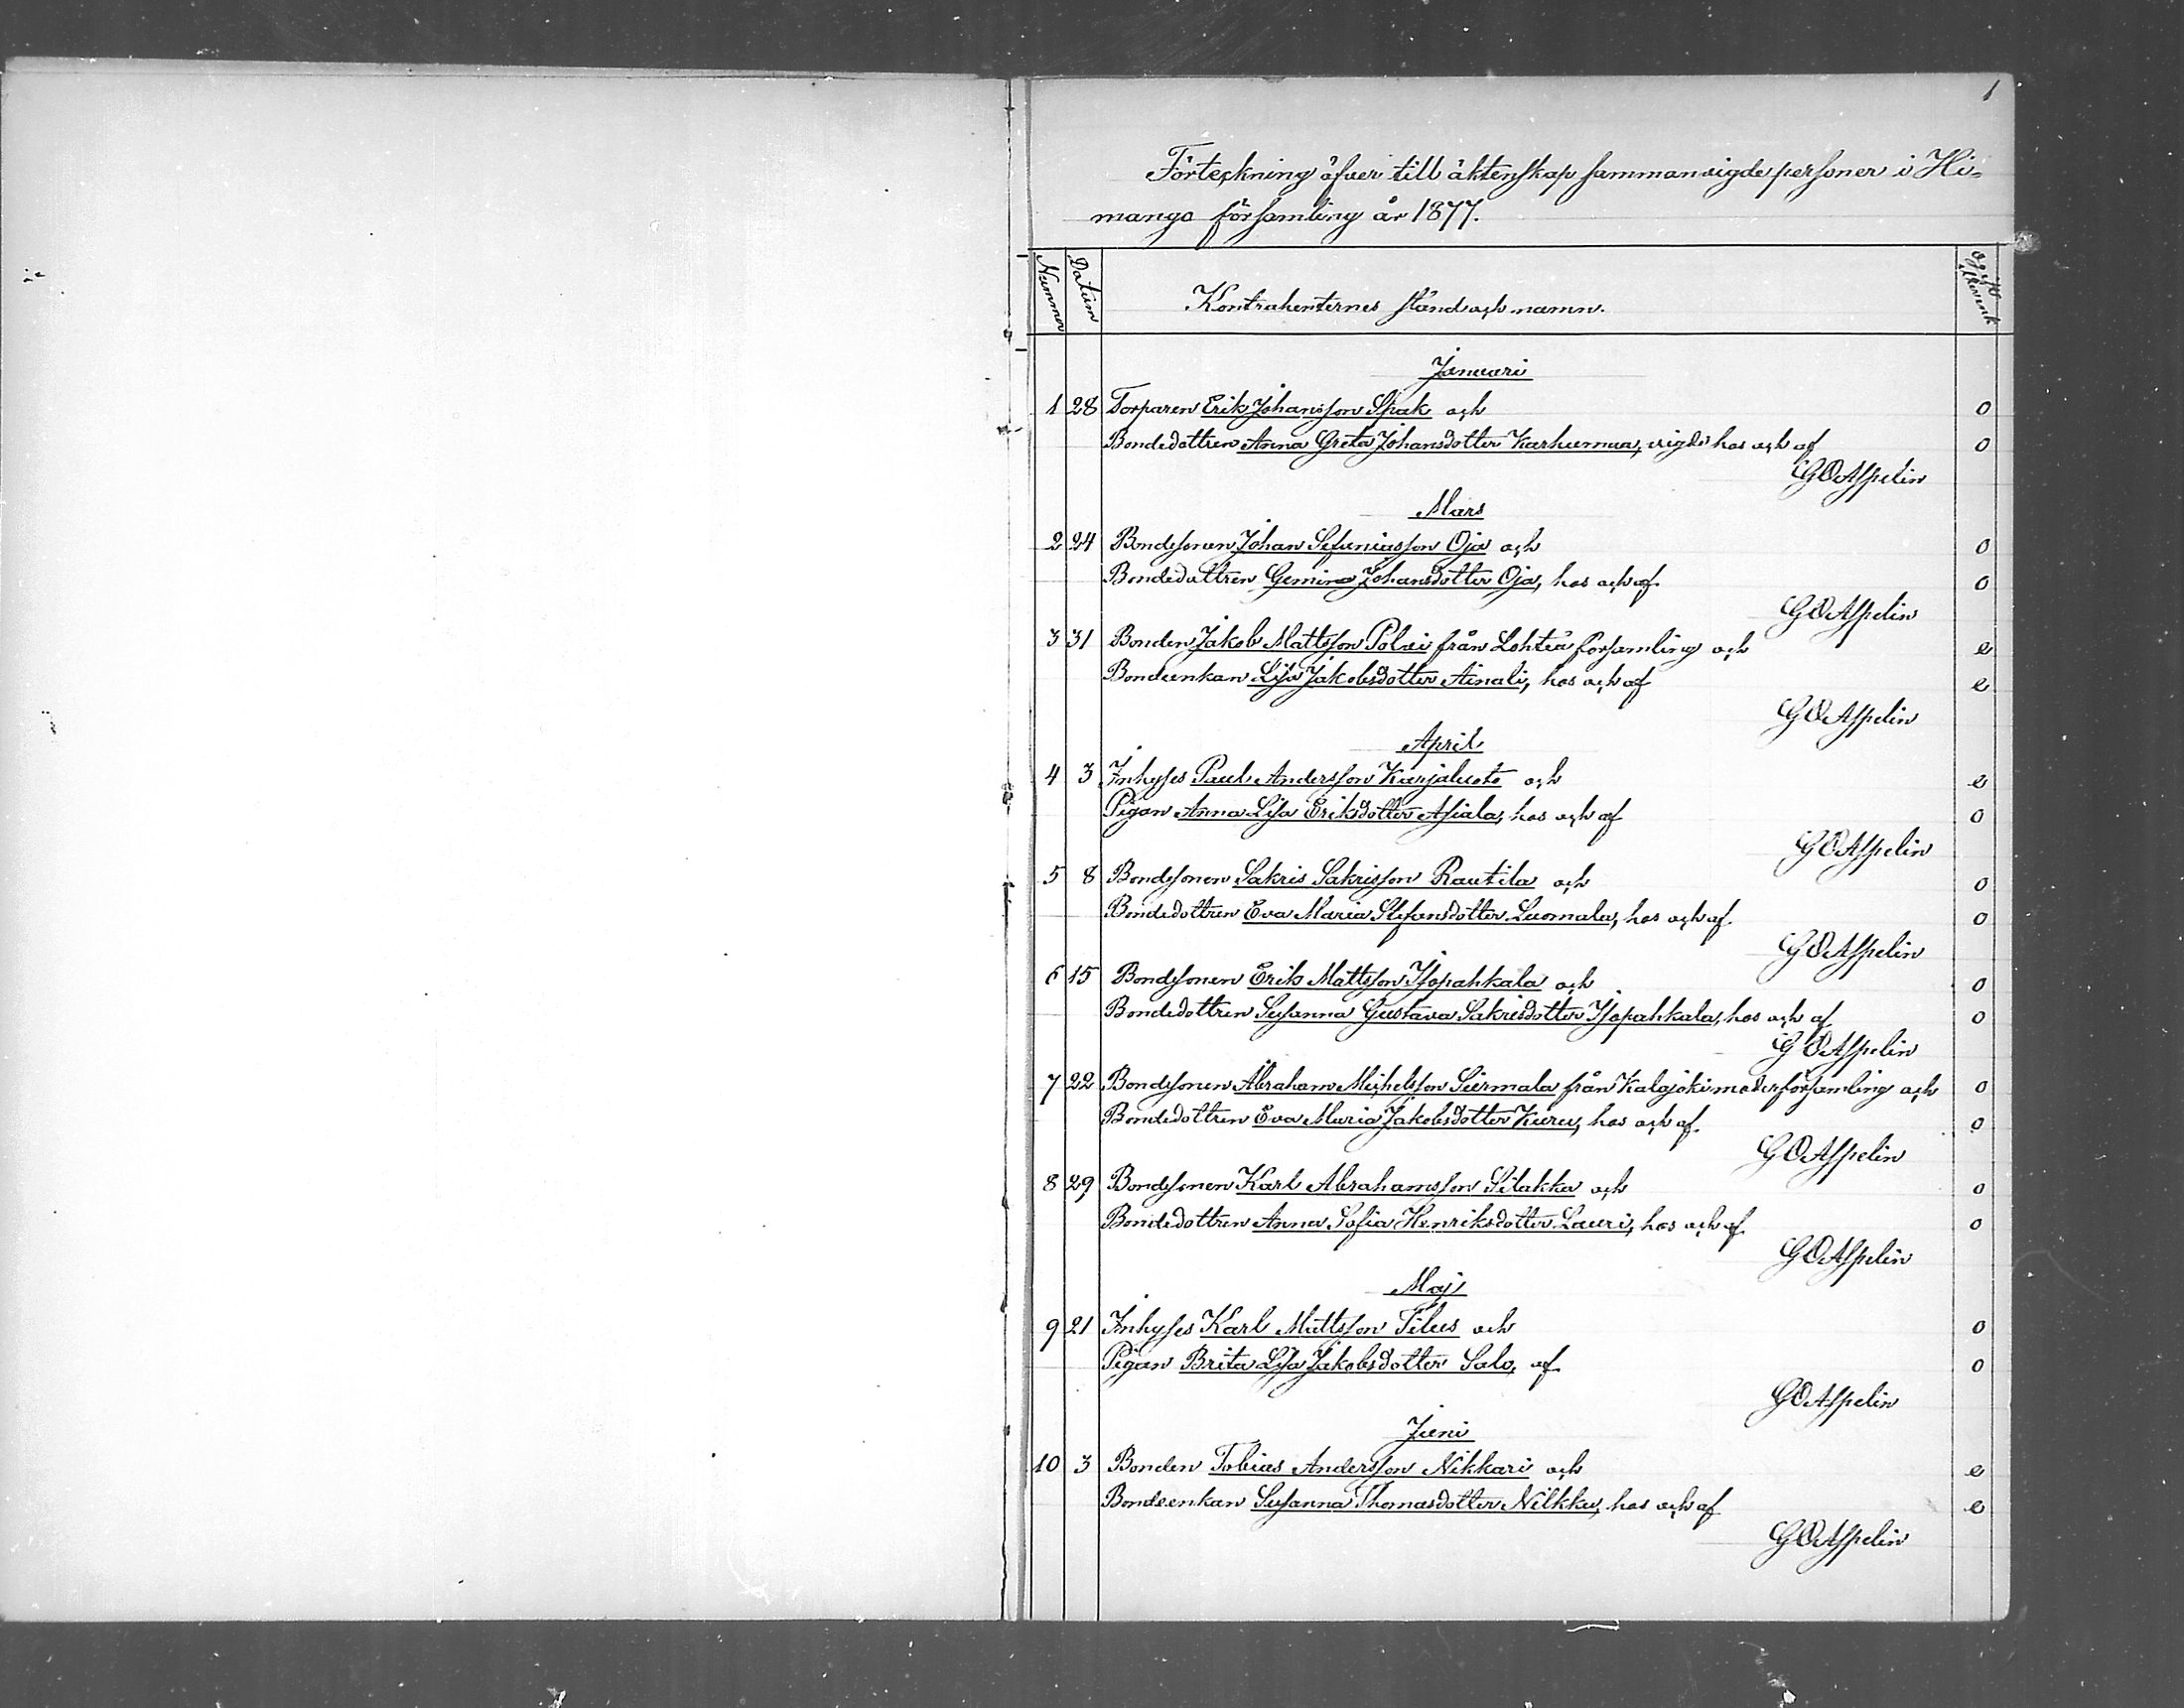 1
Förteckning öfver till äktenskap sammanvigde personer i Hi-
mango församling år 1877.
Nummer Datum Kontrahenternes stånd och namn.
Januari
1 28 Torparen Erik Johansson Spak och o
Bondedottren Anna Greta Johansdotter Karhumaa, vigde hos och af o
GOAspelin
Mars
2 24 Bondesonen Johan Sefaniasson Oja och o
Bondedottren Gemina Johansdotter Oja, hos och af o
GOAspelin
3 31 Bonden Jakob Mattsson Polvi från Lohteå församling och e
Bondeenkan Lisa Jakobsdotter Ainali, hos och af e
GOAspelin
April
4 3 Inhyses Paul Andersson Karjaluoto och e
Pigan Anna Lisa Eriksdotter Asiala, hos och af o
GOAspelin
5 8 Bondesonen Sakris Sakrisson Rautila och o
Bondedottren Eva Maria Stefansdotter Luomala, hos och af o
GOAspelin
6 15 Bondesonen Erik Mattsson Isopahkala och o
Bondedottren Susanna Gustava Sakrisdotter Isopahkala, hos och af o
GOAspelin
7 22 Bondesonen Abraham Michelsson Siirmala från Kalajoki moderförsamling och o
Bondedottren Eva Maria Jakobsdotter Kuru, hos och af o
GOAspelin
8 29 Bondesonen Karl Abrahamsson Silakka och o
Bondedottren Anna Sofia Henriksdotter Lauri, hos och af o
GOAspelin
Maj
9 21 Inhyses Karl Mattsson Tilus och o
Pigan Brita Lisa Jakobsdotter Salo, af o
GOAspelin
Juni
10 3 Bonden Tobias Andersson Nikkari och e
Bondeenkan Susanna Thomasdotter Nilkku, hos och af e
GOAspelin